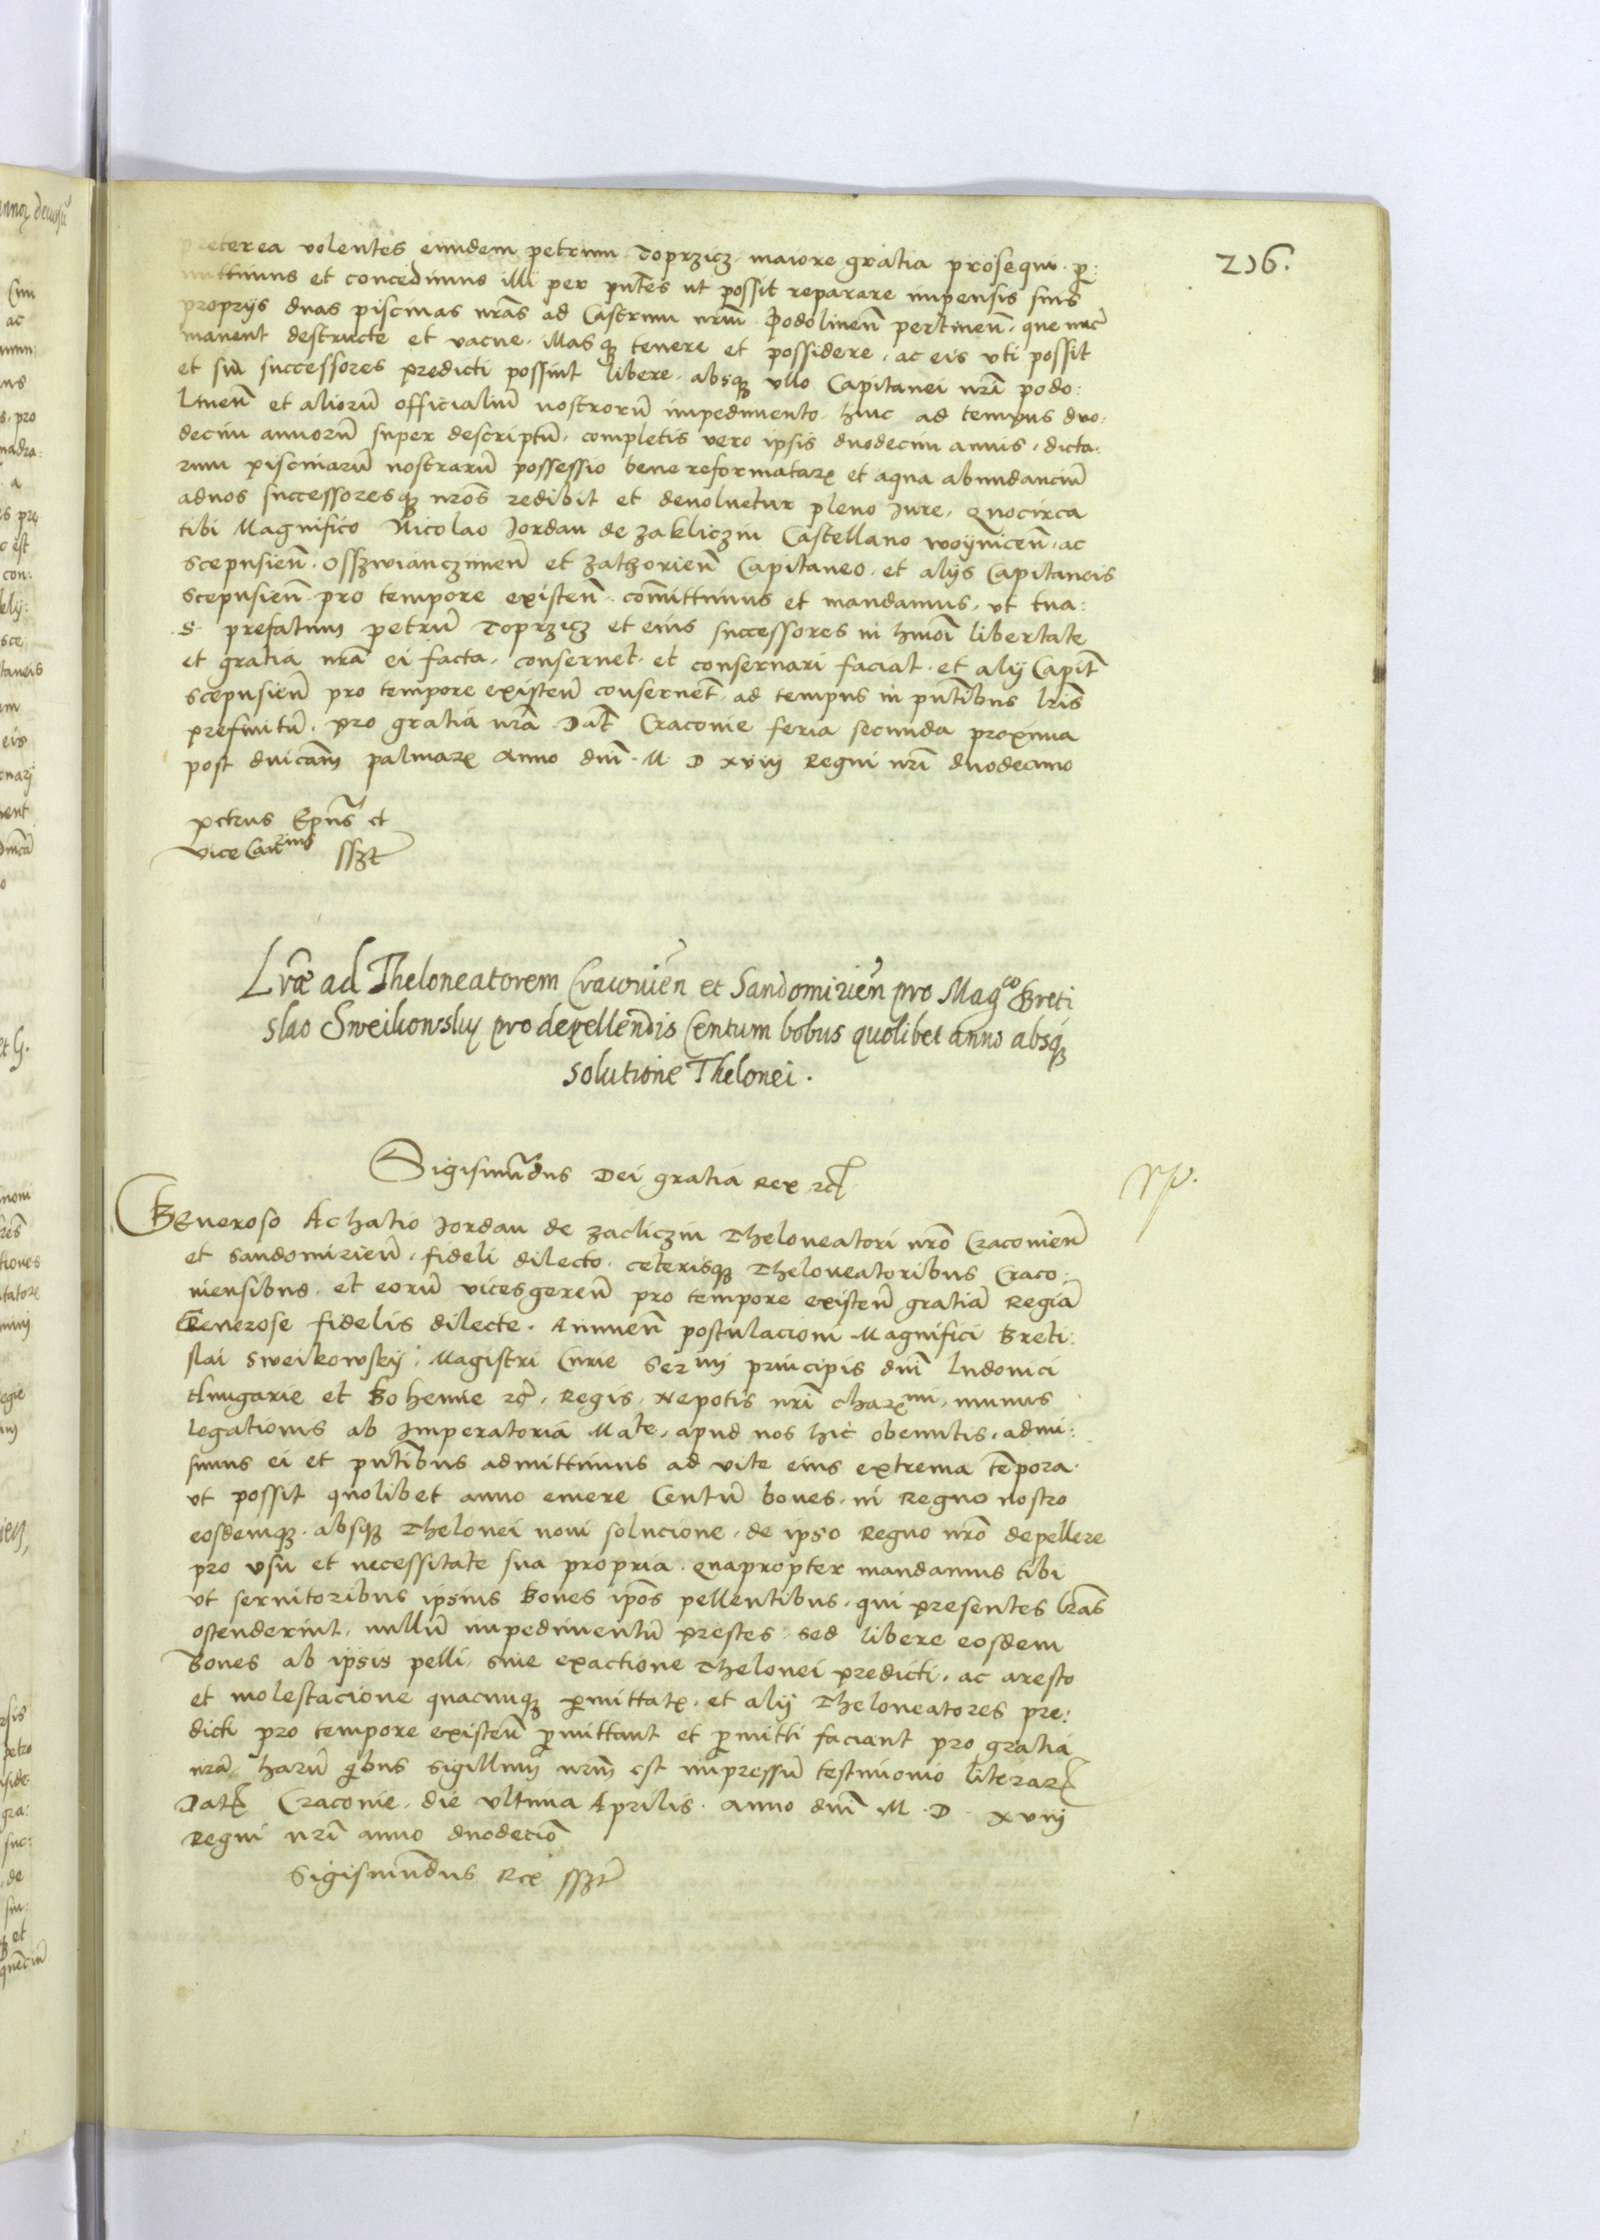 216.
preterea volentes eundem petrum Toprzicz maiore gratia prosequi p̄:
mittimus et concedimus illi per pn̄tes ut possit reparare impensis suis
proprijs duas piscinas nr̄as ad Castrum nrūm Podolinen̄ pertinen̄, que nūc
manent destructe et vacue, illasq̨ tenere et possidere, ac eis vti possit
et sui successores predicti possint libere, absq̨ vllo Capitanei nrī podo:
linen̄ et aliorū officialiū nostrorū impedimento, huic ad tempus duo:
decim annorū super descriptū, completis vero ipsis duodecim annis, dicta:
rum piscinarū nostrarū possessio bene reformatarꝝ et aqua abundanciū
ad nos successoresq̨ nrōs redibit et devoluetur pleno Jure, Quocirca
tibi Magnifico Nicolao Jordan de Zakliczin Castellano woynicen̄, ac
scepusien̄, Osszwiancziinen̄ et Zathorien̄ Capitaneo, et alijs Capitaneis
scepusien̄ pro tempore existen̄, com̄ittimus et mandamus, vt tua:
S. prefatum petrū Toprzicz et eius successores in hm̄oi libertate
et gratia nrā ei facta, conseruet, et conseruari faciat, et alij Capit̄
scepusien̄ pro tempore existen̄ conseruen̄t, ad tempus in pn̄tibus lrīs
prefinitū, pro gratia nrā Dat̄ Cracouie feria secunda proxima
post dn̄icam̄ palmarꝝ Anno dn̄i M D xviij Regni nrī duodecimo
petrus Ep̄us et
Vice Can̄rius sszt
Lrāe ad Theloneatorem Cracovien̄ et Sandomirien̄ pro Mag^co Breti
slao Sweikowsky pro depellendis Centum bobus quolibet anno absq̨
solutione Thelonei.
Sigismūdus Dei gratia Rex ꝛc̄
GEneroso Achatio Jordan de Zacliczin Theloneatori nrō Cracouien̄
et Sandomirien̄, fideli dilecto, ceterisq̨ Theloneatoribus Craco:
uiensibus, et eorū vicesgeren̄ pro tempore existen̄ gratiā Regiā
Generose fidelis dilecte. Annuen̄ postulacioni Magnifici Breti:
slai Sweikowsky, Magistri Curie Ser^mi principis dn̄i ludouici
Hungarie et Bohemie ꝛc̄, Regis, Nepotis nrī charx^mi, munus
legationis ab Imperatoria Mate, apud nos hic obeuntis, admi:
simus ei et pn̄tibus admittimus ad vite eius extrema tēpora,
vt possit quolibet anno emere Centū boues, in Regno nostro
eosdemq̨, absq̨ Thelonei noui solucione, de ipso Regno nrō depellere
pro vsu et necessitate sua propria. Quapropter mandamus tibi
vt seruitoribus ipsius Boues ip̄os pellentibus, qui presentes lrās
ostenderint, nullū impedimentū prestes, sed libere eosdem
Boues ab ipsis pelli, sine exactione Thelonei predicti, ac aresto
et molestacione quacunq̨ p̄mittatꝝ, et alij Theloneatores pre:
dicti pro tempore existen̄ p̄mittant et p̄mitti faciant pro gratia
nrā, harū q̄bus sigillum nrūm est impressū testimonio literarꝝ
Datꝝ Cracouie, die vltima Aprilis, anno dn̄i M . D . xviij
Regni nrī anno duodecīo
Sigismūdus Rex sszt